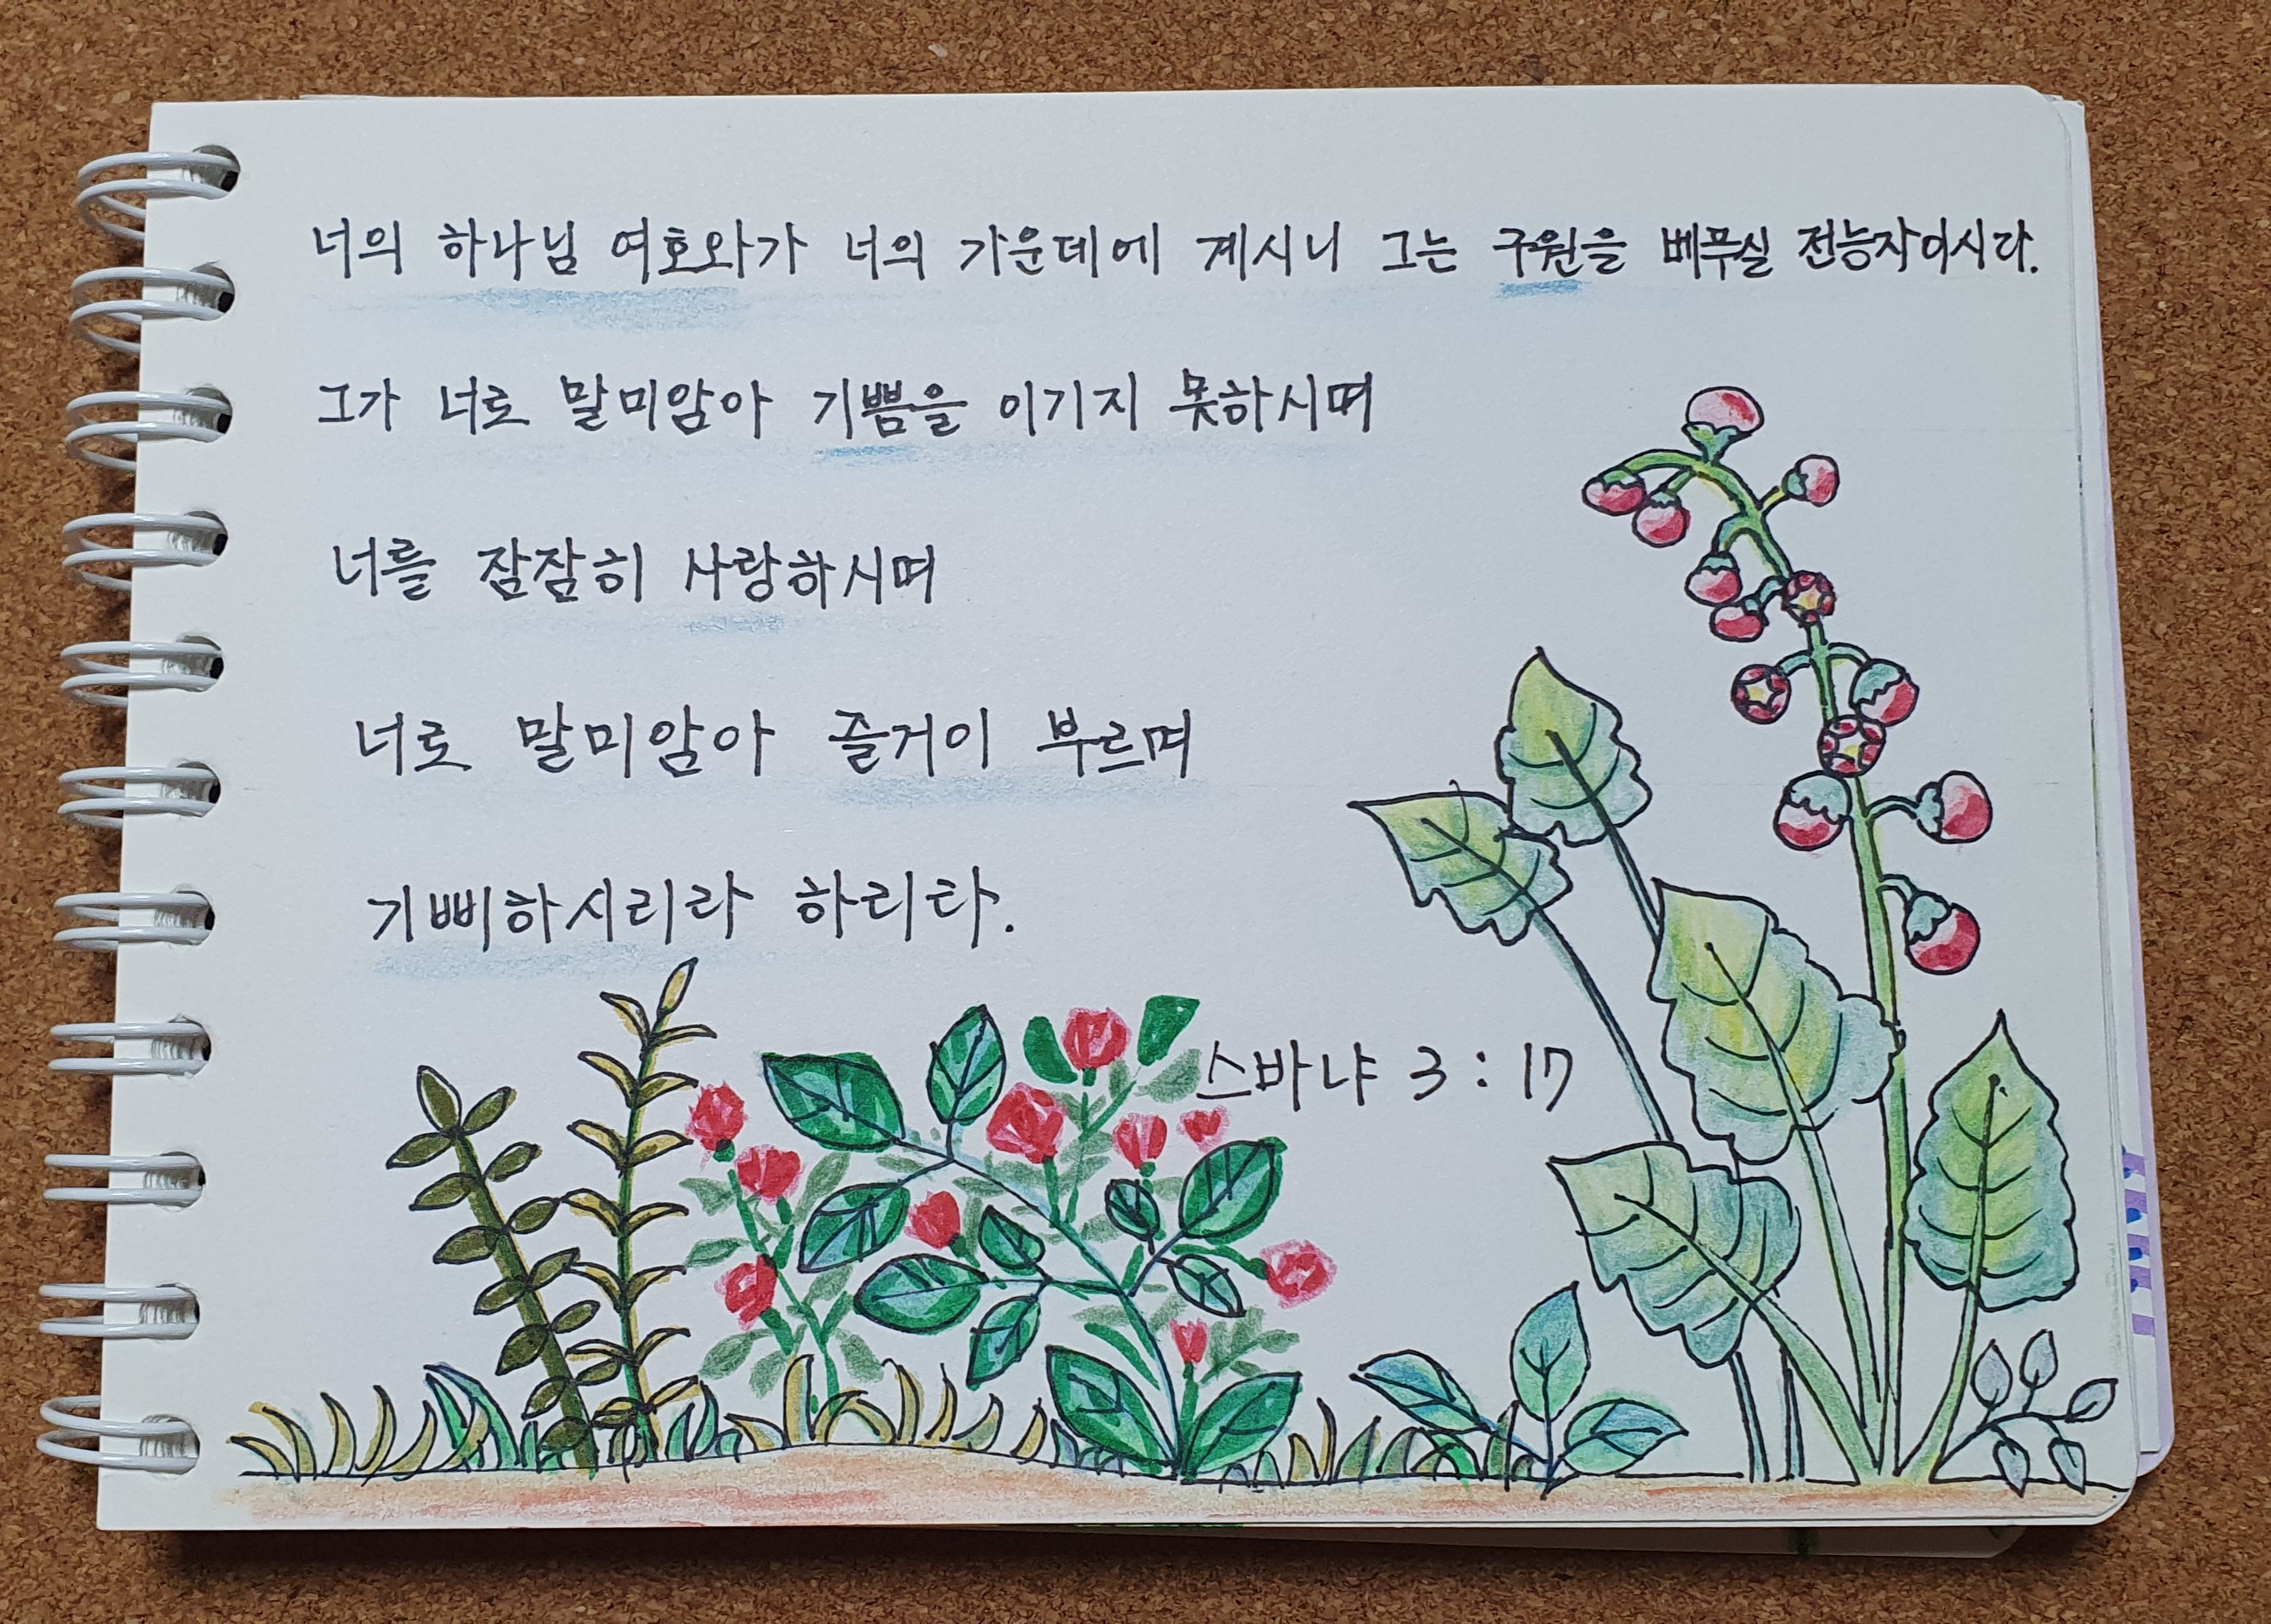 너의 하나님 여호와가 너의 가운데에 계시니 그는 구원을 베푸실 전능자이시다.
그가 너로 말미암아 기쁨을 이기지 못하시며
너를 잠잠히 사랑하시며
너로 말미암아 즐거이 부르며
기삐하시리라 하리타.
스바냐 3 : 17